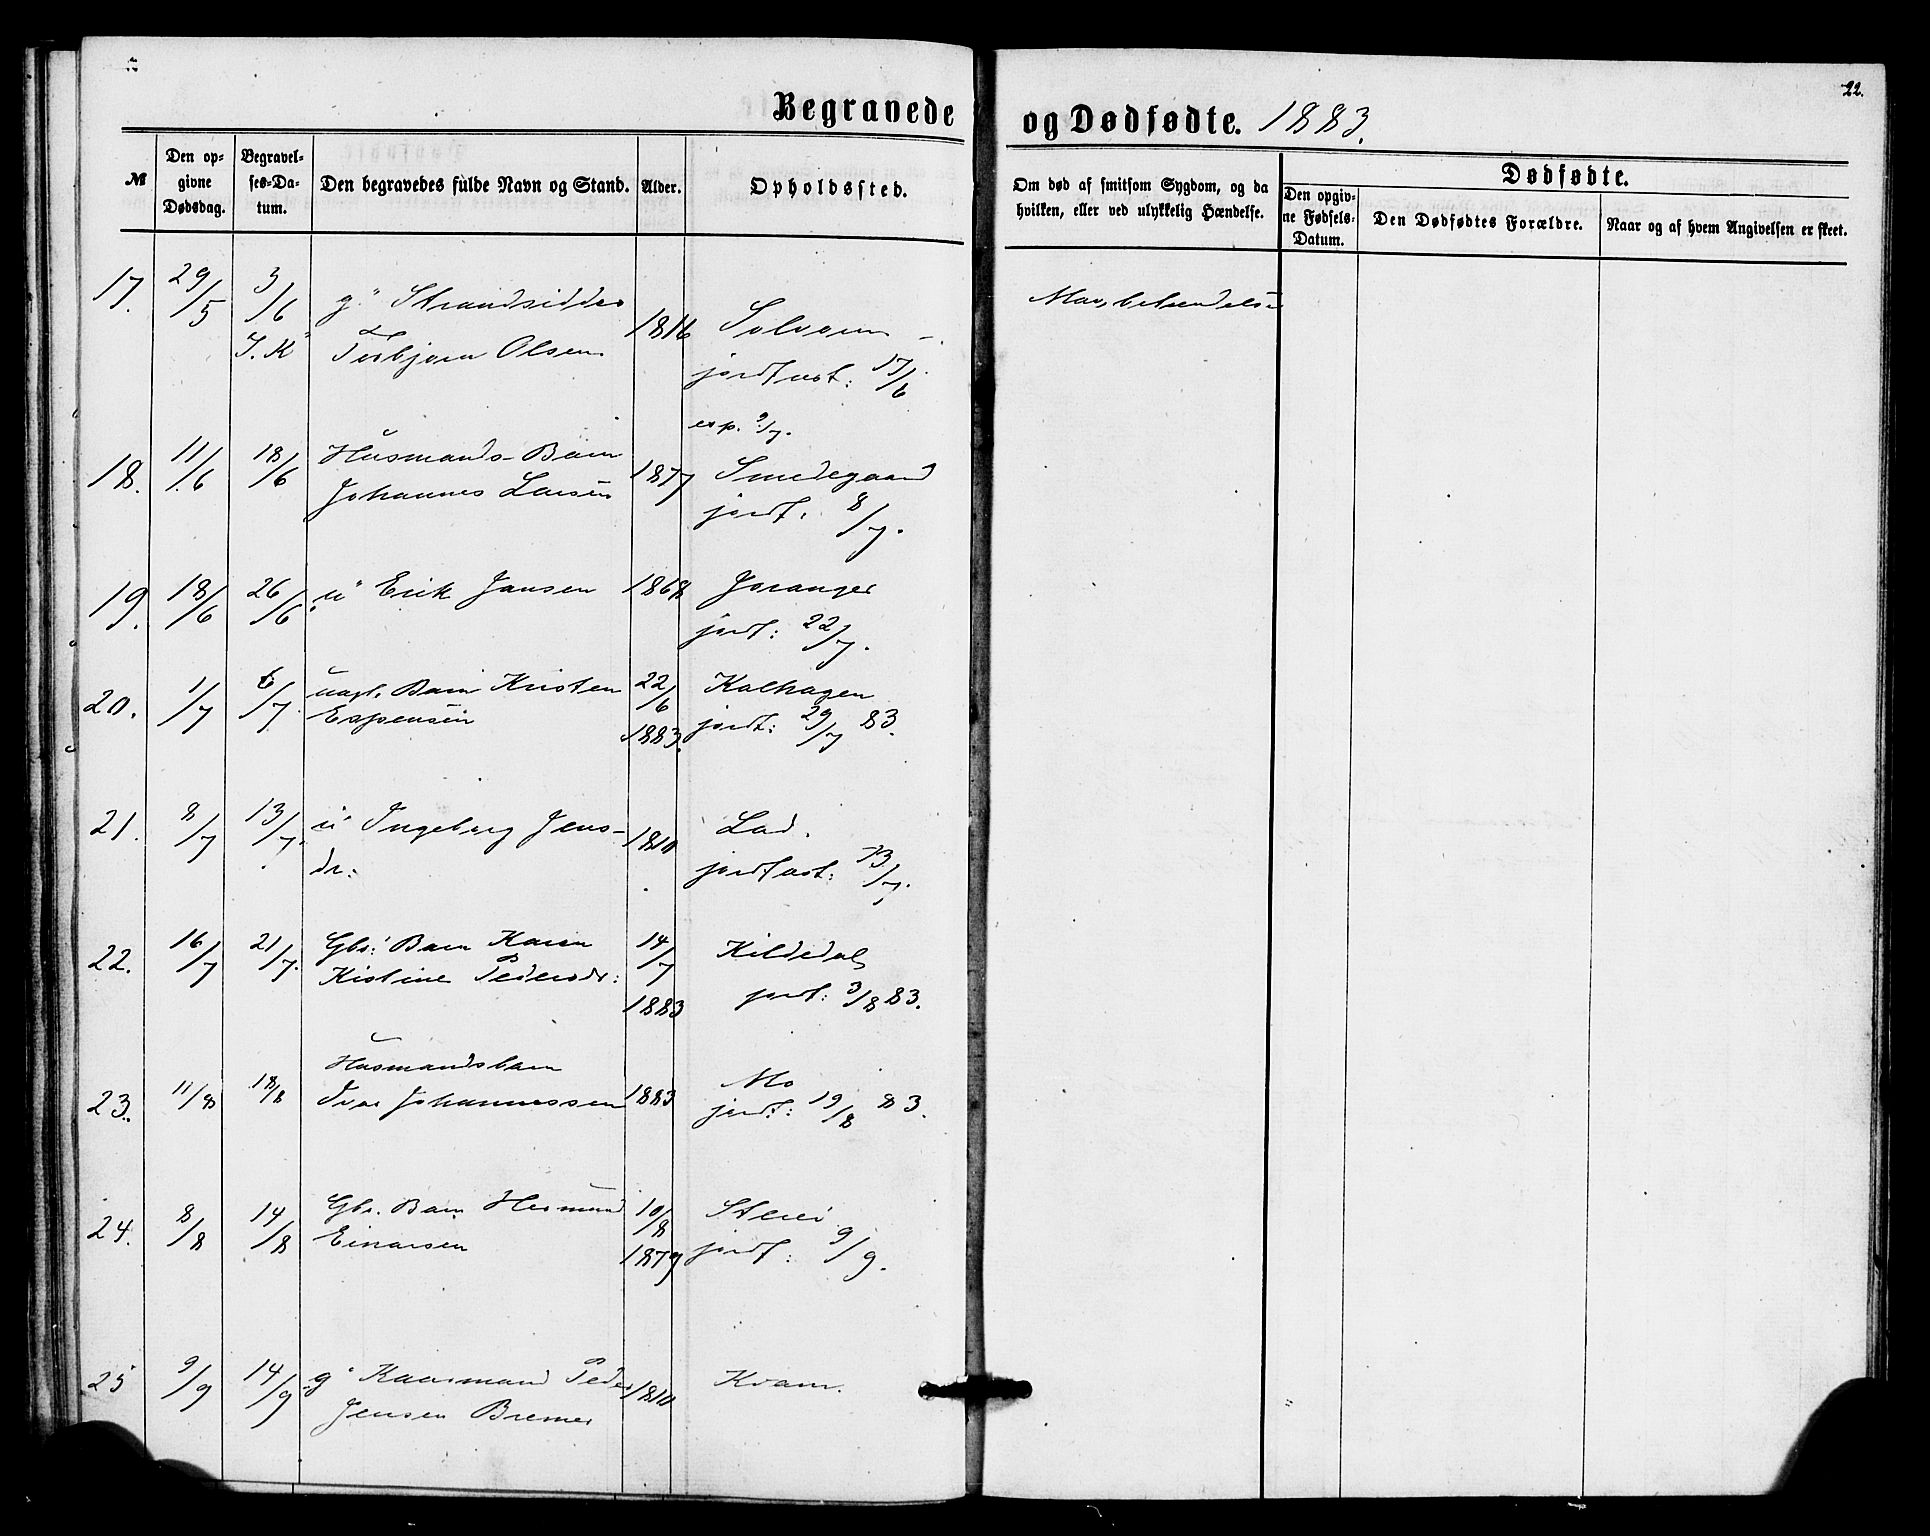 22.
Begravede og Dødfødte. 1883.
№
Den opgivne Dødsdag.
Begravelses-Datum.
Den begravedes fulde Navn og Stand.
Alder.
Opholdssted.
Om død af smitsom Sygdom, og da hvilken, eller ved ulykkelig Hændelse.
Dødfødte.
Den opgivne Fødsels-Datum.
Den Dødfødtes Forældre.
Naar og af hvem Angivelsen er skeet.
17. 29/5 3/6 g. Strandsidder 1816 Solvorn
J. K Torbjørn Olsen jordfast: 17/6
esp. 9/7.
18. 11/6 18/6 Husmands-Barn 1877 Smedegaard
Johannes Larsen jordf. 8/7.
19. 18/6 26/6 u. Erik Jansen 1868 Joranger
jordf: 22/7.
20. 1/7 6/7 uægt. Barn Kristen 22/6 Kalhagen
Espensen 1883. jordf: 29/7 83.
21. 8/7 13/7 u. Ingeborg Jens- 1810 Lad.
dr. jordfast: 13/7.
22. 16/7 21/7. Gbr. Barn Karen 14/7 Kildedal
Kistine Pedersdr: 1883 jordf: 3/8 83.
23. 11/8 18/8 Husmandsbarn Mo
Ivar Johannessen 1883 jordf: 19/8 83.
24. 8/8 14/8 Gbr. Barn Hermund 10/8
Einarsen 1879 jordf: 9/9.
25 9/9 14/9 g. Kaarmand Peder 1810 Kvam.
Jensen Bremer